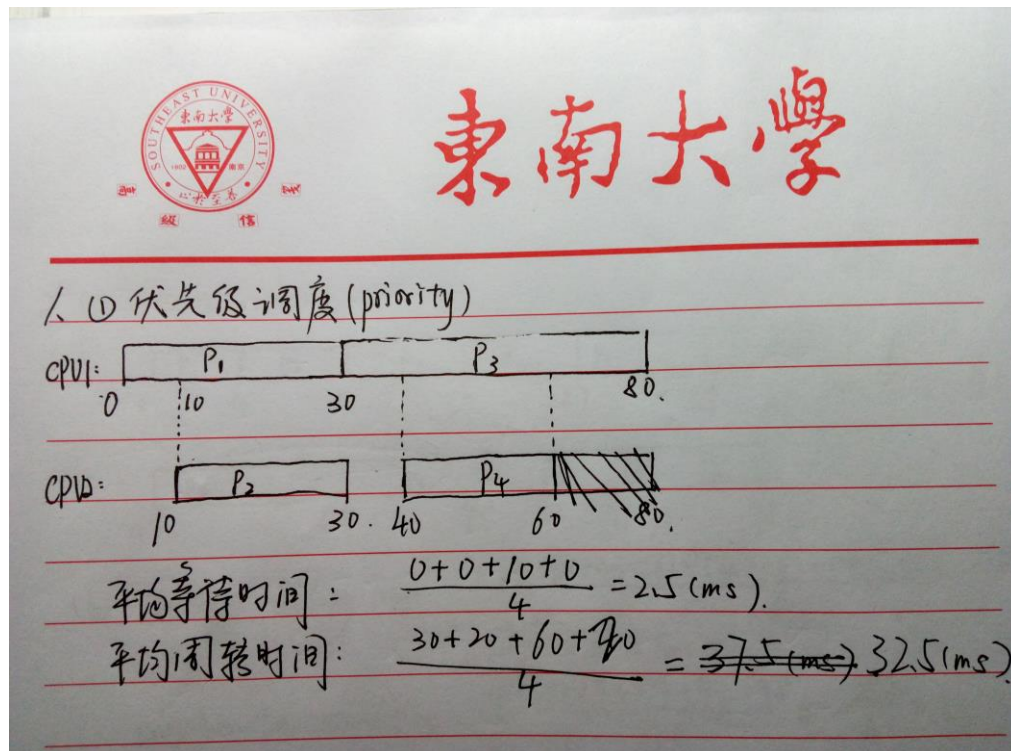 SOUTHEAST UNIVERSITY
東南大學
1902 南京
東南大學
1、① 优先级调度(priority)
CPU1: P1 P3
0 10 30 80.
CPU2: P2 P4
10 30. 40 60 80.
平均等待时间: (0+0+10+0)/4 = 2.5(ms).
平均周转时间: (30+20+60+20)/4 = 37.5(ms) 32.5(ms).